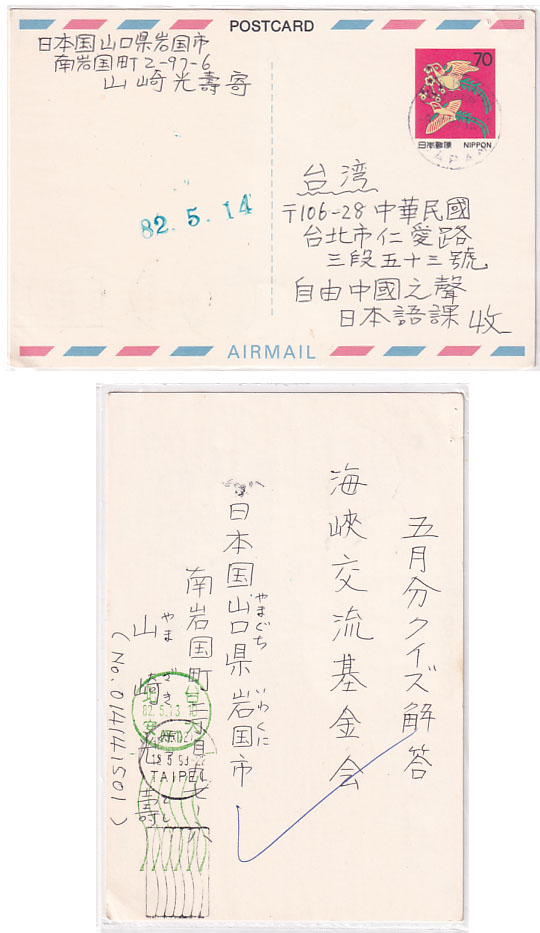 POSTCARD
日本国山口県岩国市
南岩国町2-97-6
山崎光壽寄
70
日本郵便 NIPPON
82.5.14
台湾
〒106-28 中華民國
台北市仁愛路
三段五十三號
自由中國之聲
日本語課 收
AIRMAIL
五月分クイズ解答
海峽交流基金会
日本国山口県岩国市
やまぐち いわくに
南岩国町二丁目
山崎光壽
やま ざき
(No.014141501)
82.5.13
TAIPEI